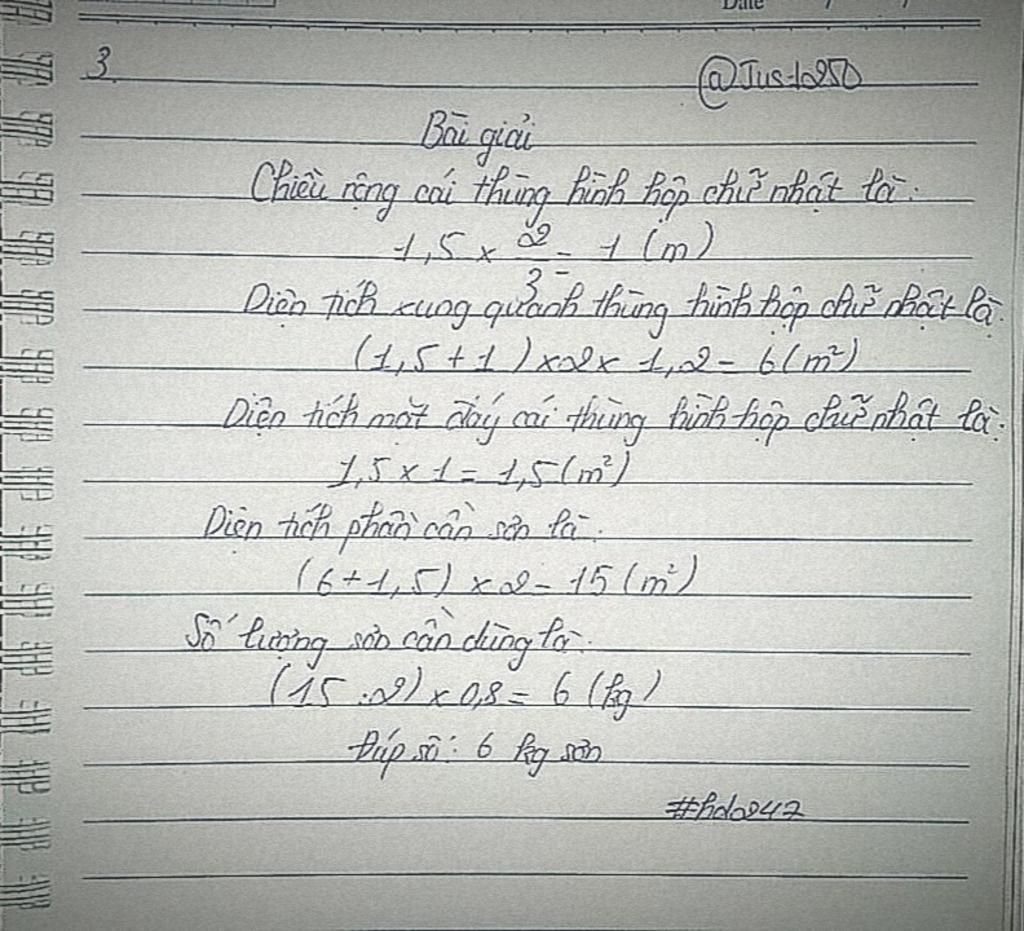 Date / /
3. @Jus-1250
Bài giải
Chiều rộng cái thùng hình hộp chữ nhật là:
1,5 × 2/3 = 1 (m)
Diện tích xung quanh thùng hình hộp chữ nhật là:
(1,5 + 1) × 2 × 1,2 = 6 (m²)
Diện tích mặt đáy cái thùng hình hộp chữ nhật là:
1,5 × 1 = 1,5 (m²)
Diện tích phần cần sơn là:
(6 + 1,5) × 2 = 15 (m²)
Số lượng sơn cần dùng là:
(15 : 2) × 0,8 = 6 (kg)
Đáp số: 6 kg sơn